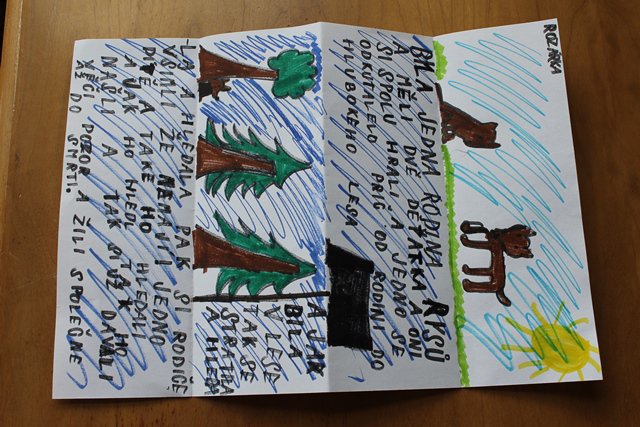 ROZÁRKA
BÍLA JEDNA RODINA RYSŮ
A MĚLI DVĚ DĚTÁTKA A ONI
SI SPOLU HRÁLI A JEDNO SE
ODKUTÁLELO PRIČ OD RODINI DO
HLUBOKÉHO LESA
A JAK
BÍLA
V LESE
TAK SE
STRATILA
A HLEDA
-LA A HLEDALA PAK SI RODIČE
VŠIMLI ŽE NEMAJÍ JEDNO
A TAKÉ HO HLEDALI
A JAK HO TAK HO
NAŠLI A TAK SI UŽ DÁVALI
VĚCI POZOR A ŽILI SPOLEČNĚ
AŽ DO SMRTI.